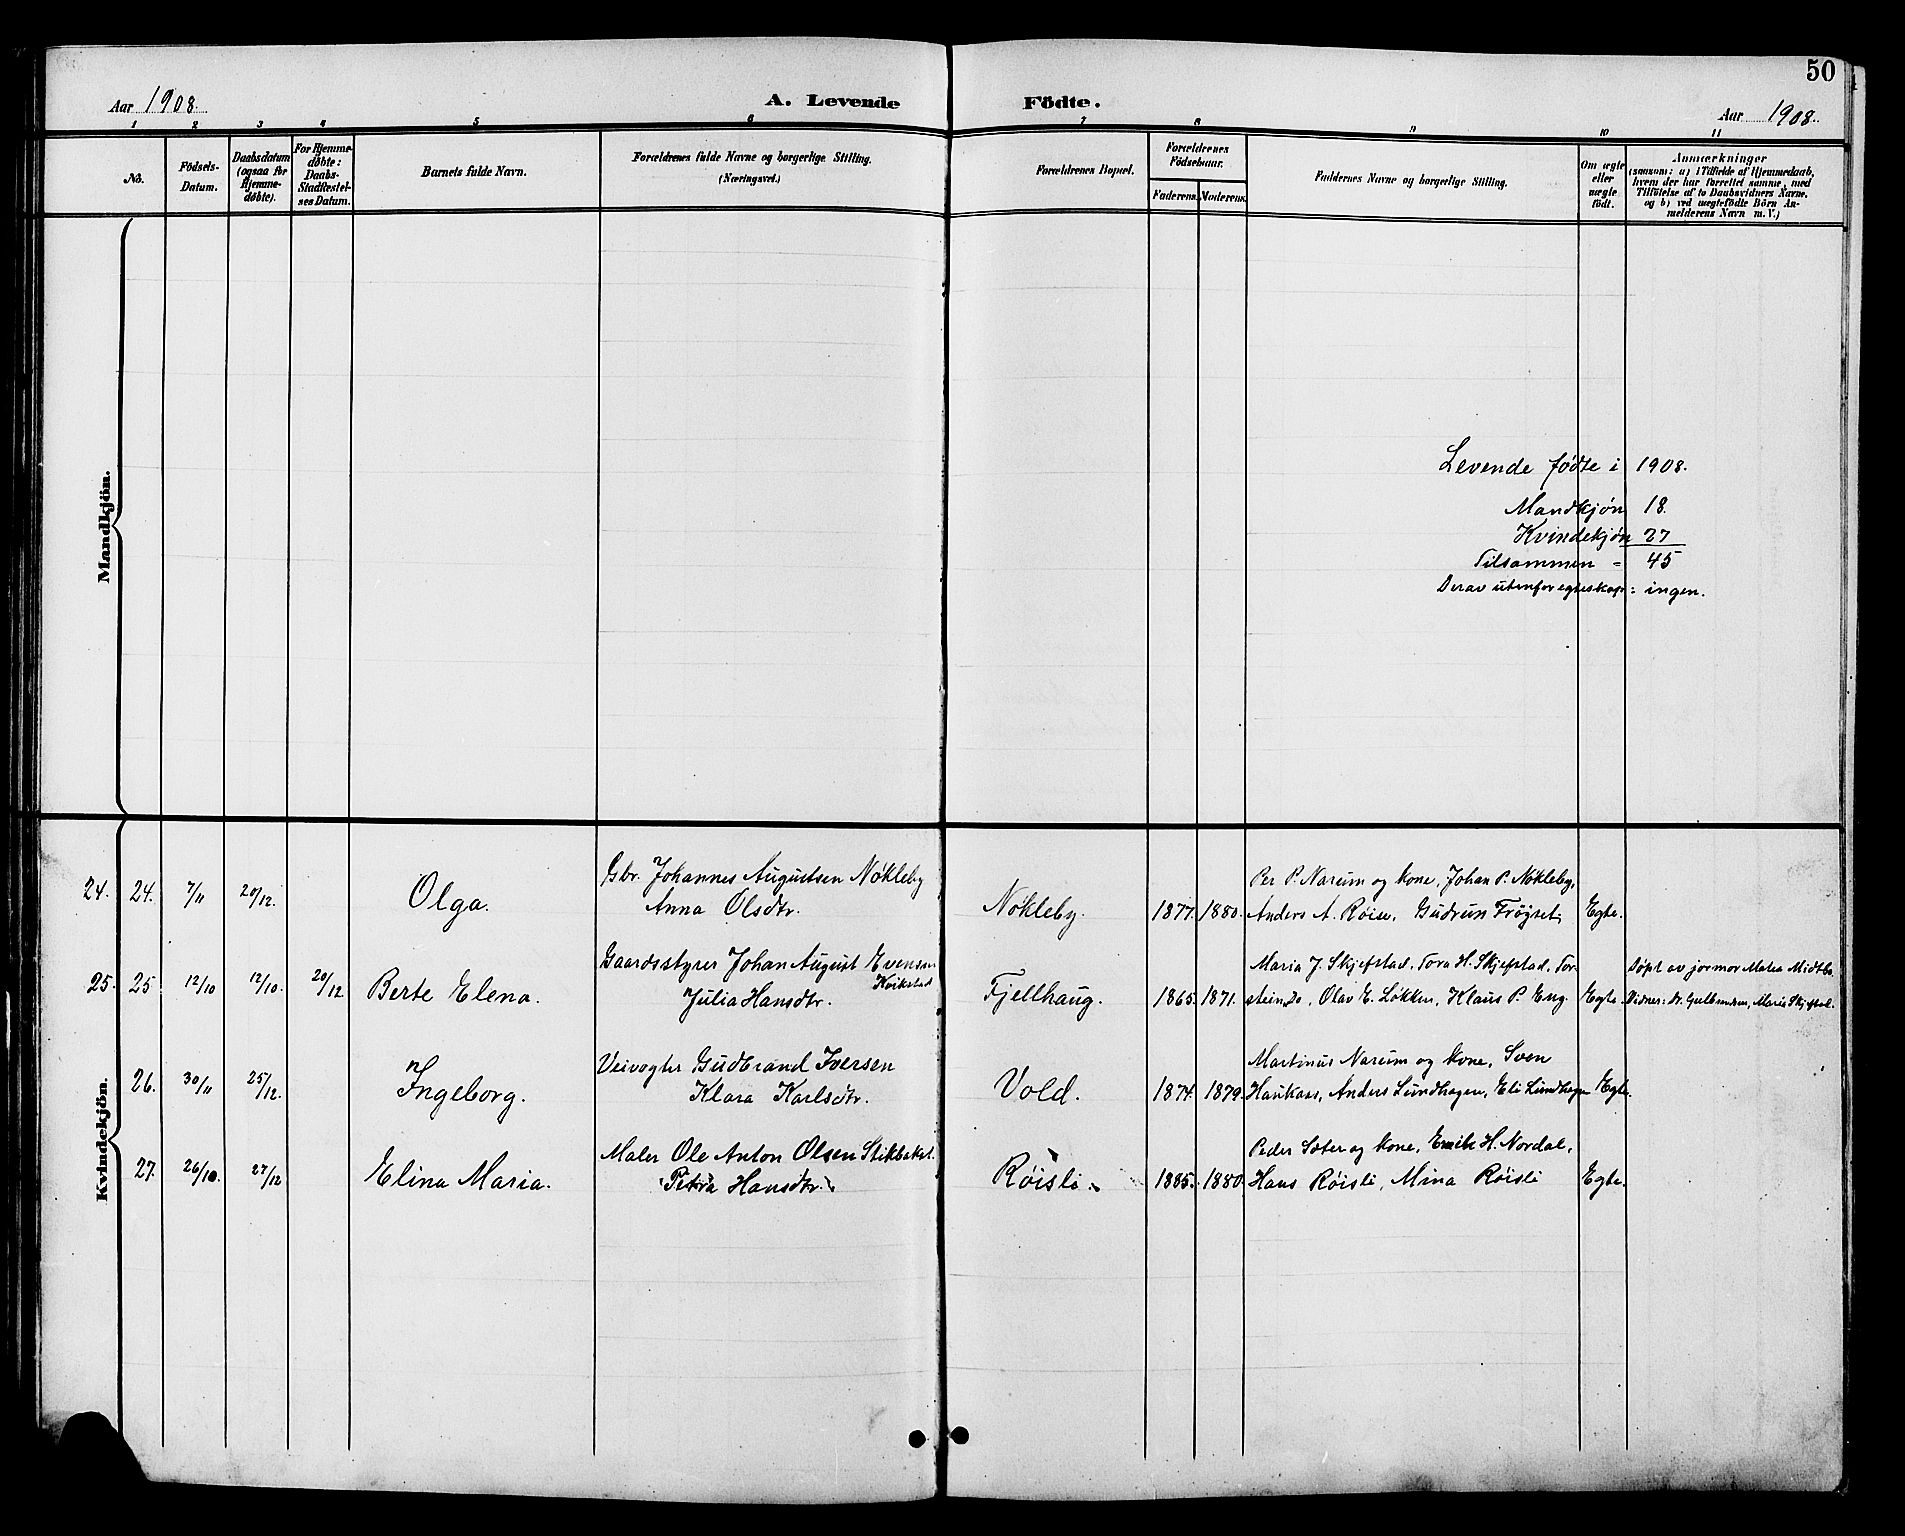 50
Aar 1908.
A. Levende Födte.
Aar 1908.
1 2 3 4 5 6 7 8 9 10 11
No.
Födsels-Datum.
Daabsdatum (ogsaa for Hjemmedøbte).
For Hjemmedøbte: Daabs-Stadfæstelses Datum.
Barnets fulde Navn.
Forældrenes fulde Navne og borgerlige Stilling. (Næringsvei.)
Forældrenes Bopæl.
Forældrenes Födselsaar.
Faderens. Moderens.
Faddernes Navne og borgerlige Stilling.
Om ægte eller uægte födt.
Anmærkninger
(saasom: a) i Tilfælde af Hjemmedaab,
hvem der har forrettet samme, med
Tilföielse af to Daabsvidners Navne,
og b) ved uægtefödte Börn An-
melderens Navn m. V.)
Mandkjön.
Levende fødte i 1908.
Mandkjøn 18.
Kvindekjøn 27
Tilsammen = 45
Derav utenfor egteskap: ingen.
Kvindekjön.
24. 24. 7/11 20/12. Olga. Gbr. Johannes Augustsen Nøkleby
Anna Olsdtr. Nøkleby. 1877. 1880. Per P. Narum og kone, Johan P. Nøkleby,
Anders A. Røise, Gudrun Frøyset, Egte.
25. 25 12/10 12/10. 20/12 Berte Elena. Gaardsstyrer Johan August Evensen
Kvikstad
Julia Hansdtr. Fjellhaug. 1865. 1871. Maria J. Skjefstad, Tora H. Skjefstad, Tor-
stein Do, Olav E. Løkken, Klaus P. Eng. Egte. Døpt av jormor Matea Midtbø
Vidner: Dr. Gulbransen, Maria Skjefstad.
26. 30/11 25/12. Ingeborg. Veivogter Gudbrand Iversen
Klara Karlsdtr. Vold. 1874. 1879. Martinus Narum og kone, Sven
Haukaas, Anders Lundhagen, Eli Lundhagen Egte.
27. 26/10. 27/12 Elina Maria. Maler Ole Anton Olsen Stikbakel.
Petra Hansdtr. Røisli. 1885. 1880. Peder Sæter og kone, Emilie H. Nordal,
Hans Røisli, Mina Røisli Egte.